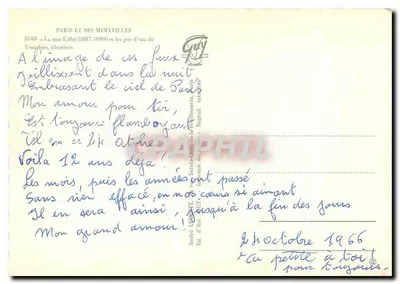 PARIS ET SES MERVEILLES
5140 - La tour Eiffel (1887-1889) et les jets d'eau du
Trocadéro, illuminés.
Guy
A l'image de ces feux
jaillissant dans la nuit
Embrasant le ciel de Paris
Mon amour pour toi,
Est toujours flamboyant
Tel 24 Octobre
Voila 12 ans déja!
Les mois, puis les années ont passé
Sans rien effacé, en nos cœurs si aimant
Il en sera ainsi, jusqu'à la fin des jours
Mon grand amour.
24 octobre 1966
Ta petite à toi
pour toujours.
CARAPHIL